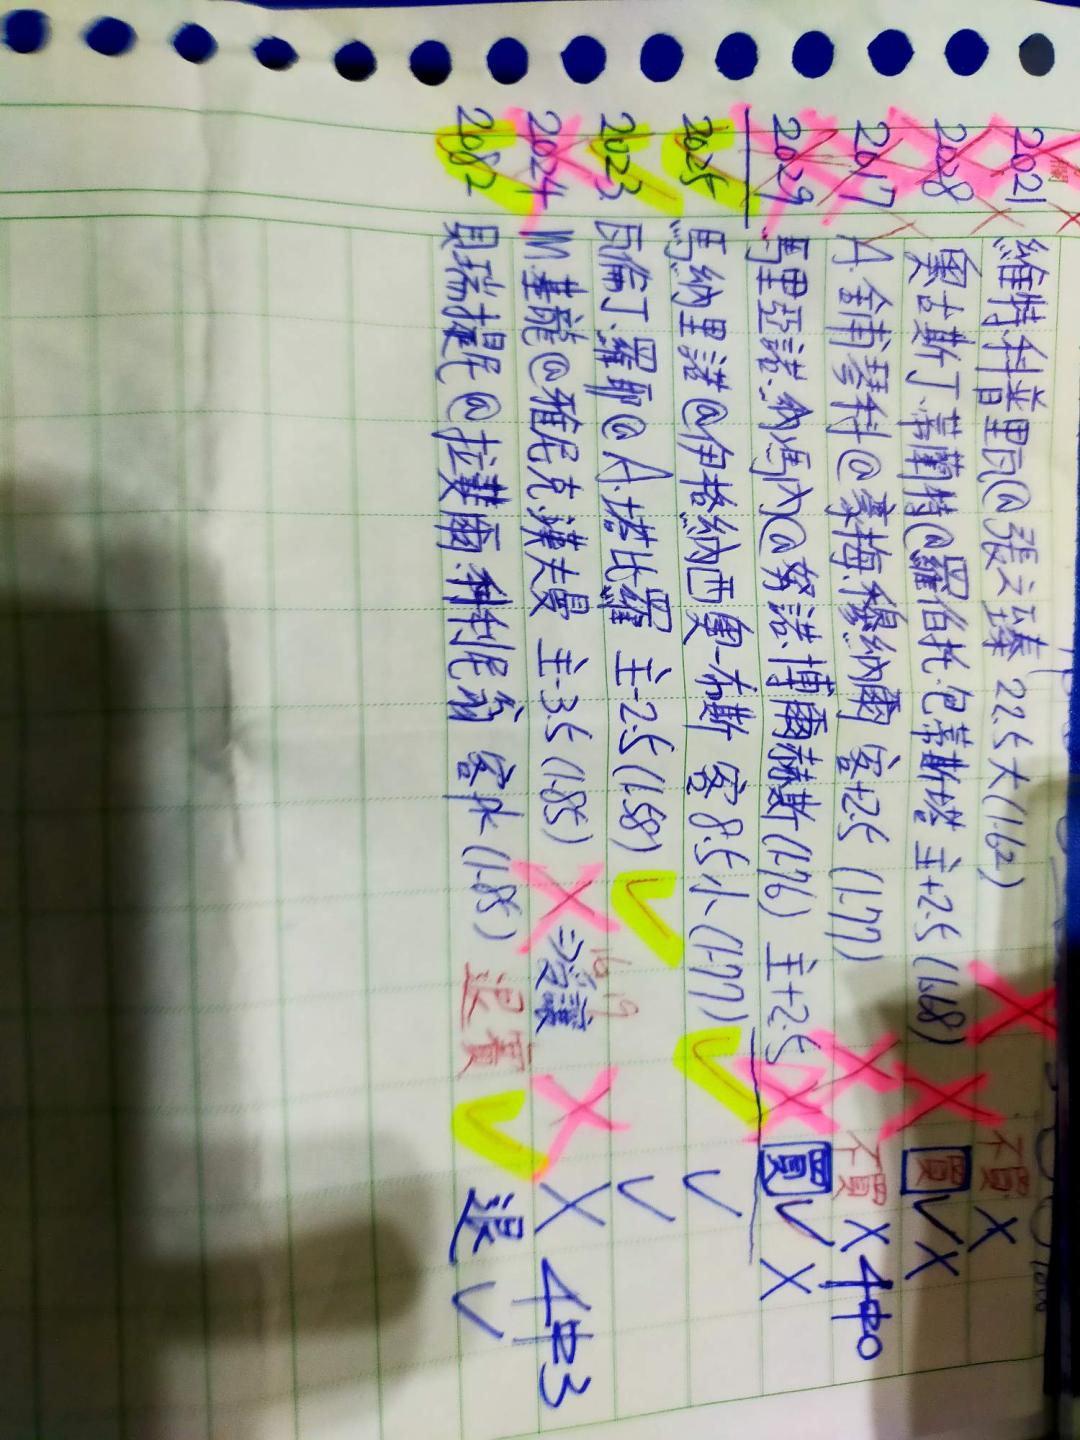 2021 維特.科普里瓦@張之臻 22.5大(1.62) 不買 X
2028 奧古斯丁.蒂蘭特@羅伯托.包蒂斯塔 主+2.5 (1.68) 買 V X
2017 A.鋪琴科@豪梅.穆納爾 客+2.5 (1.77) 不買 X 4中0
2029 馬里亞諾.納馮內@努諾.博爾赫斯(1.76) 主+2.5 買 V X
2025 馬納里諾@伊格納西奧.布斯 客8.5小(1.77) V V
2023 瓦倫丁.羅耶@A.塔比羅 主-2.5(1.58) V V
2024 M.基龍@雅尼克.漢夫曼 主-3.5(1.85) X ⇒沒讓 16 19 X X 4中3
2082 貝瑞提尼@拉斐爾.科利尼翁 客水(1.85) 退賣 V 退 V